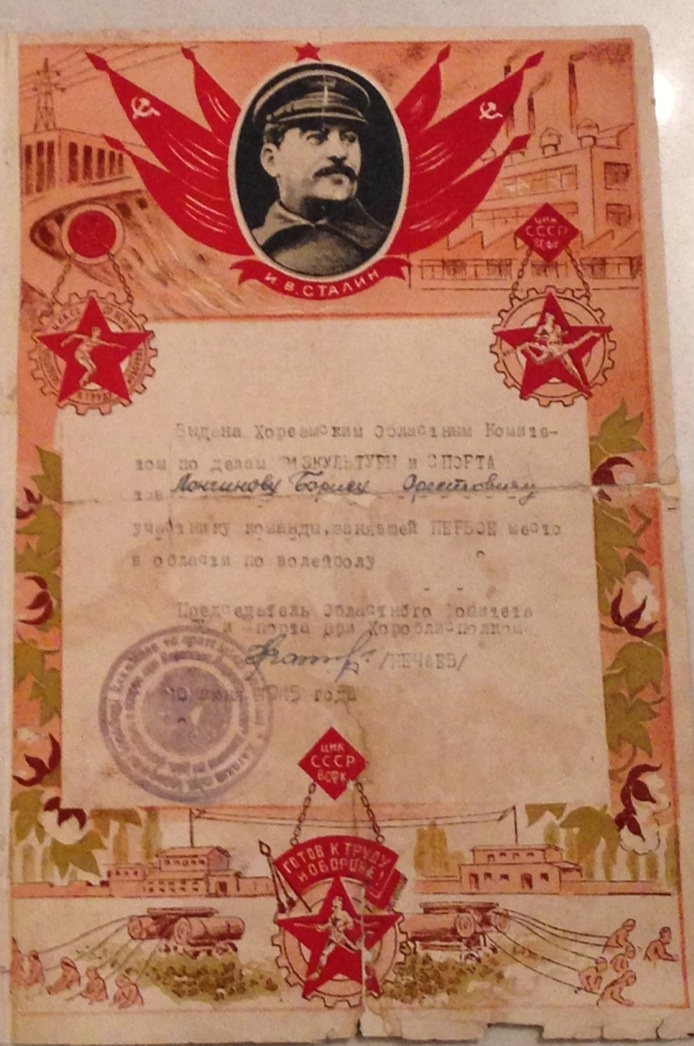 И В. СТАЛИН
ЦИК
СССР
ВСФК
Выдана Хорезмским Областным Комите-
том по делам ФИЗКУЛЬТУРЫ и СПОРТА
тов Лончинову Борису Орестовичу
участнику команды, занявшей ПЕРВОЕ место
в области по волейболу
Председатель Областного Комитета
и Спорта при Хороблисполком
/НЕЧАЕВ/
10 1945 года
ЦИК
СССР
ВСФК
ГОТОВ К ТРУДУ
И ОБОРОНЕ!